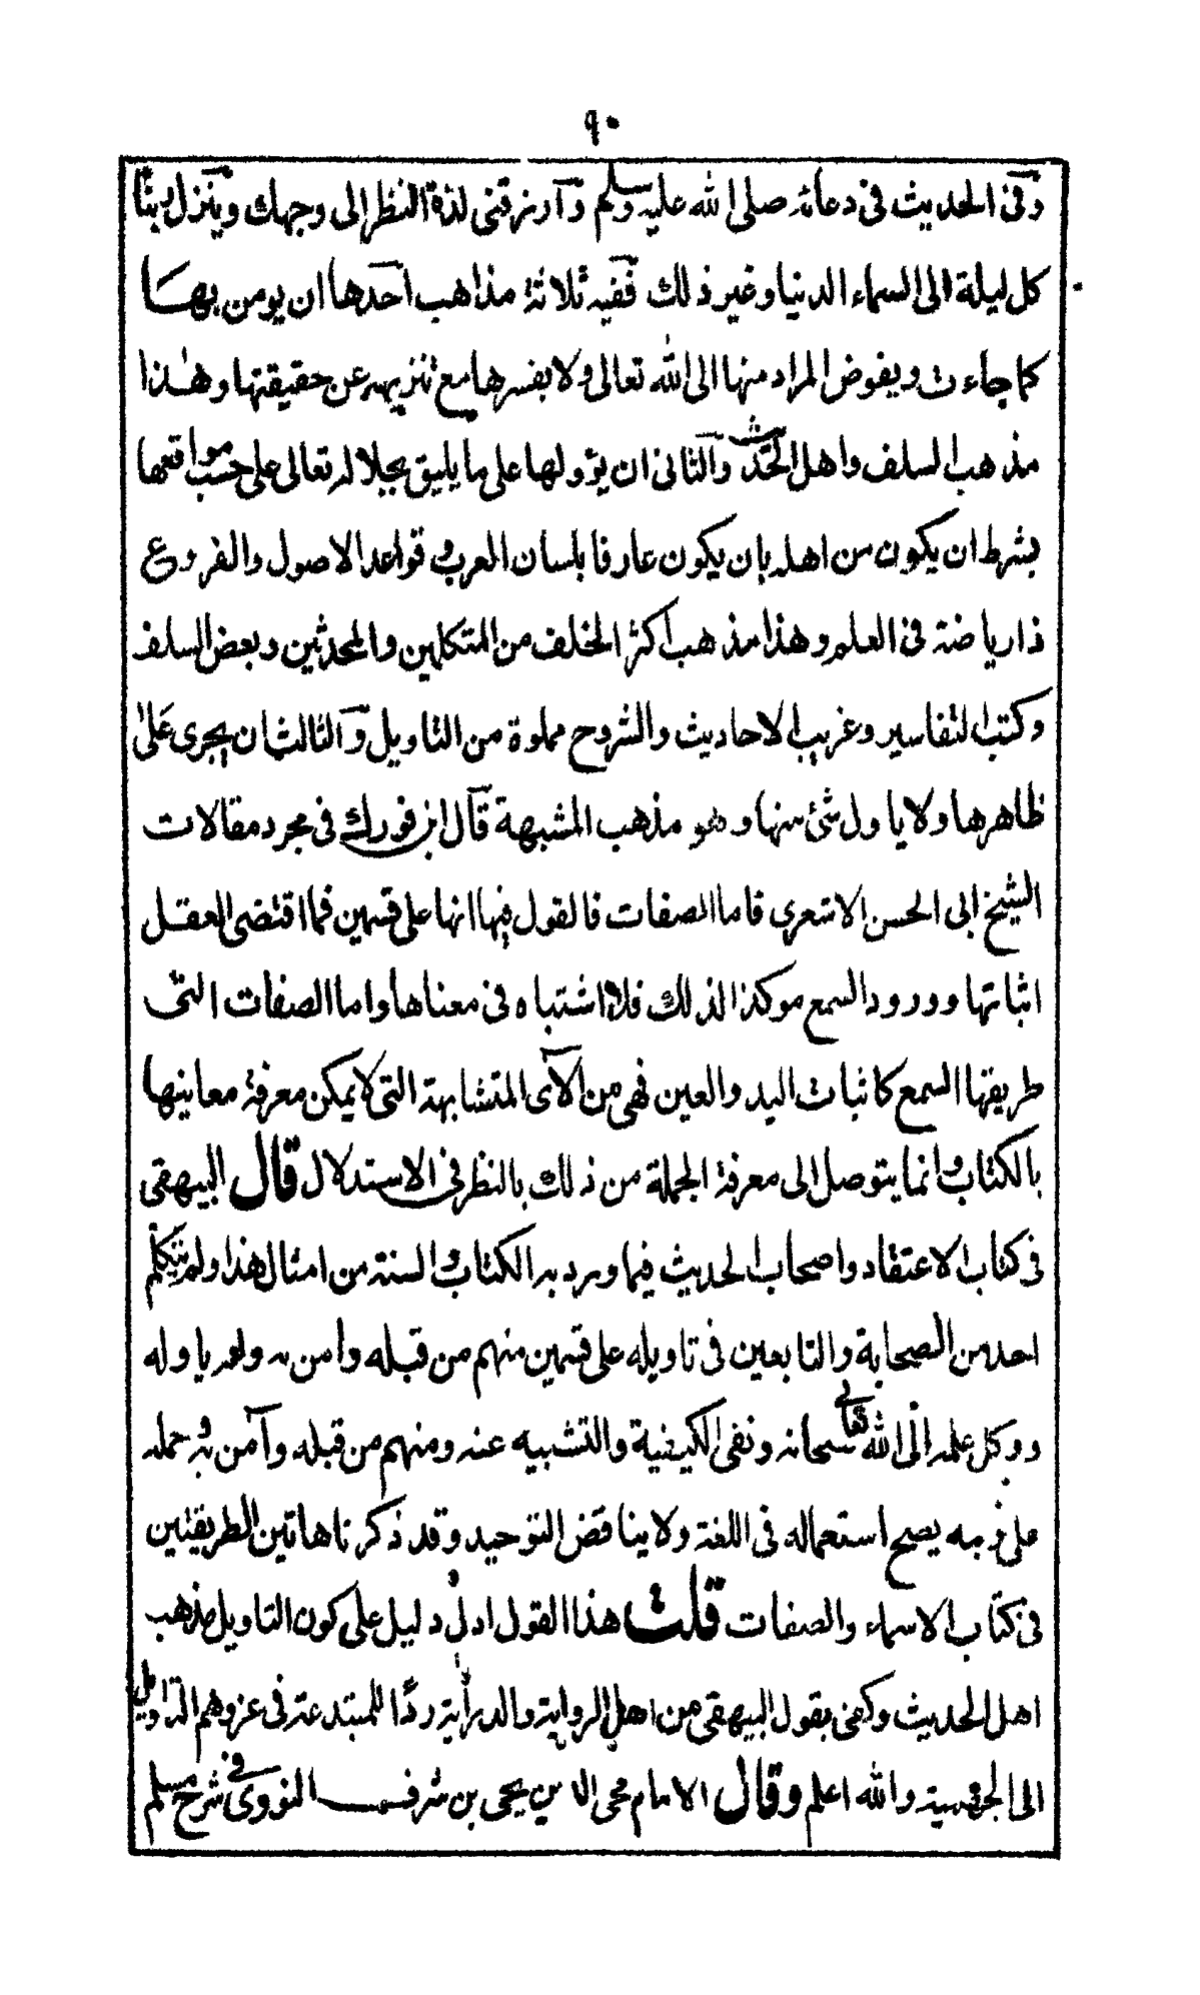 ٩٠
وفى الحديث فى دعائه صلى الله عليه وسلم وارزقنى لذة النظر الى وجهك وينزل ربنا
كل ليلة الى السماء الدنيا وغير ذلك ففيه ثلاثة مذاهب احدها ان يومن بها
كما جاءت ويفوض المراد منها الى الله تعالى ولا يفسرها مع تنزيهه عن حقيقتها وهذا
مذهب السلف واهل الحديث والثانى ان يؤولها على ما يليق بجلاله تعالى على حسب مواقعها
بشرط ان يكون من اهله بان يكون عارفا بلسان العرب و قواعد الاصول والفروع
ذا رياضة فى العلم وهذا مذهب اكثر الخلف من المتكلمين والمحدثين وبعض السلف
وكتب التفاسير وغريب الاحاديث والشروح مملوة من التاويل والثالث ان يجرى على
ظاهرها ولا ياول شئ منها وهو مذهب المشبهة قال ابن فورك فى مجرد مقالات
الشيخ ابى الحسن الاشعرى فاما الصفات فالقول فيها انها على قسمين فما اقتضى العقل
اثباتها وورود السمع موكدا لذلك فلا اشتباه فى معناها واما الصفات التى
طريقها السمع كاثبات اليد والعين فهى من الآى المتشابهة التى لا يمكن معرفة معانيها
بالكتاب وانما يتوصل الى معرفة الجملة من ذلك بالنظر فى الاستدلال قال البيهقى
فى كتاب الاعتقاد واصحاب الحديث فيما ورد به الكتاب والسنة من امثال هذا ولم يتكلم
احد من الصحابة والتابعين فى تاويله على قسمين منهم من قبله وامن به ولم ياوله
ووكل علمه الى الله سبحانه تعالى ونفى الكيفية والتشبيه عنه ومنهم من قبله وآمن به وحمله
على وجه يصح استعماله فى اللغة ولا يناقض التوحيد وقد ذكرنا هاتين الطريقتين
فى كتاب الاسماء والصفات قلت هذا القول ادل دليل على كون التاويل مذهب
اهل الحديث وكفى بقول البيهقى من اهل الرواية والدراية ردًا للمبتدعة فى عزوهم التاويل
الى الجهمية والله اعلم وقال الامام محى الدين يحيى بن شرف النووى فى شرح مسلم